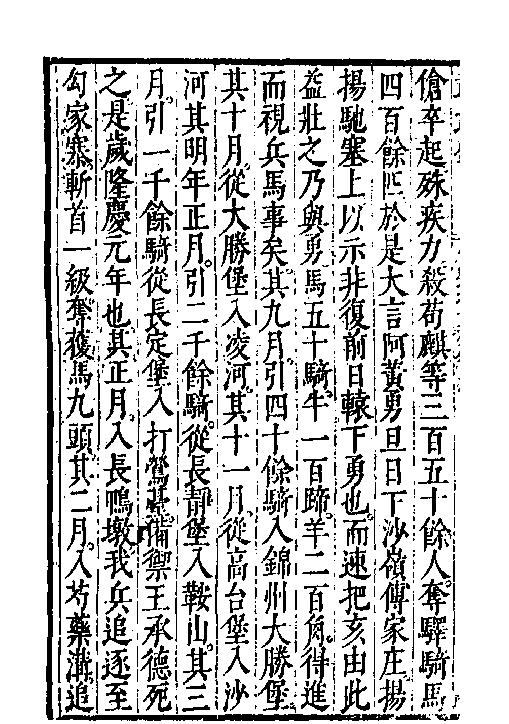 傖卒起殊疾力殺苟麒等三百五十餘人奪驛騎馬
四百餘匹於是大言阿黃勇旦日下沙嶺傅家庄揚
揚馳塞上以示非復前日轅下勇也而速把亥由此
益壯之乃與勇馬五十騎牛一百蹄羊二百角得進
而視兵馬事矣其九月引四十餘騎入錦州大勝堡
其十月從大勝堡入凌河其十一月從高台堡入沙
河其明年正月引二千餘騎從長靜堡入鞍山其三
月引一千餘騎從長定堡入打鶯墓備禦王承德死
之是歲隆慶元年也其正月入長鴨墩我兵追逐至
勾家寨斬首一級奪獲馬九頭其二月入芍藥溝追